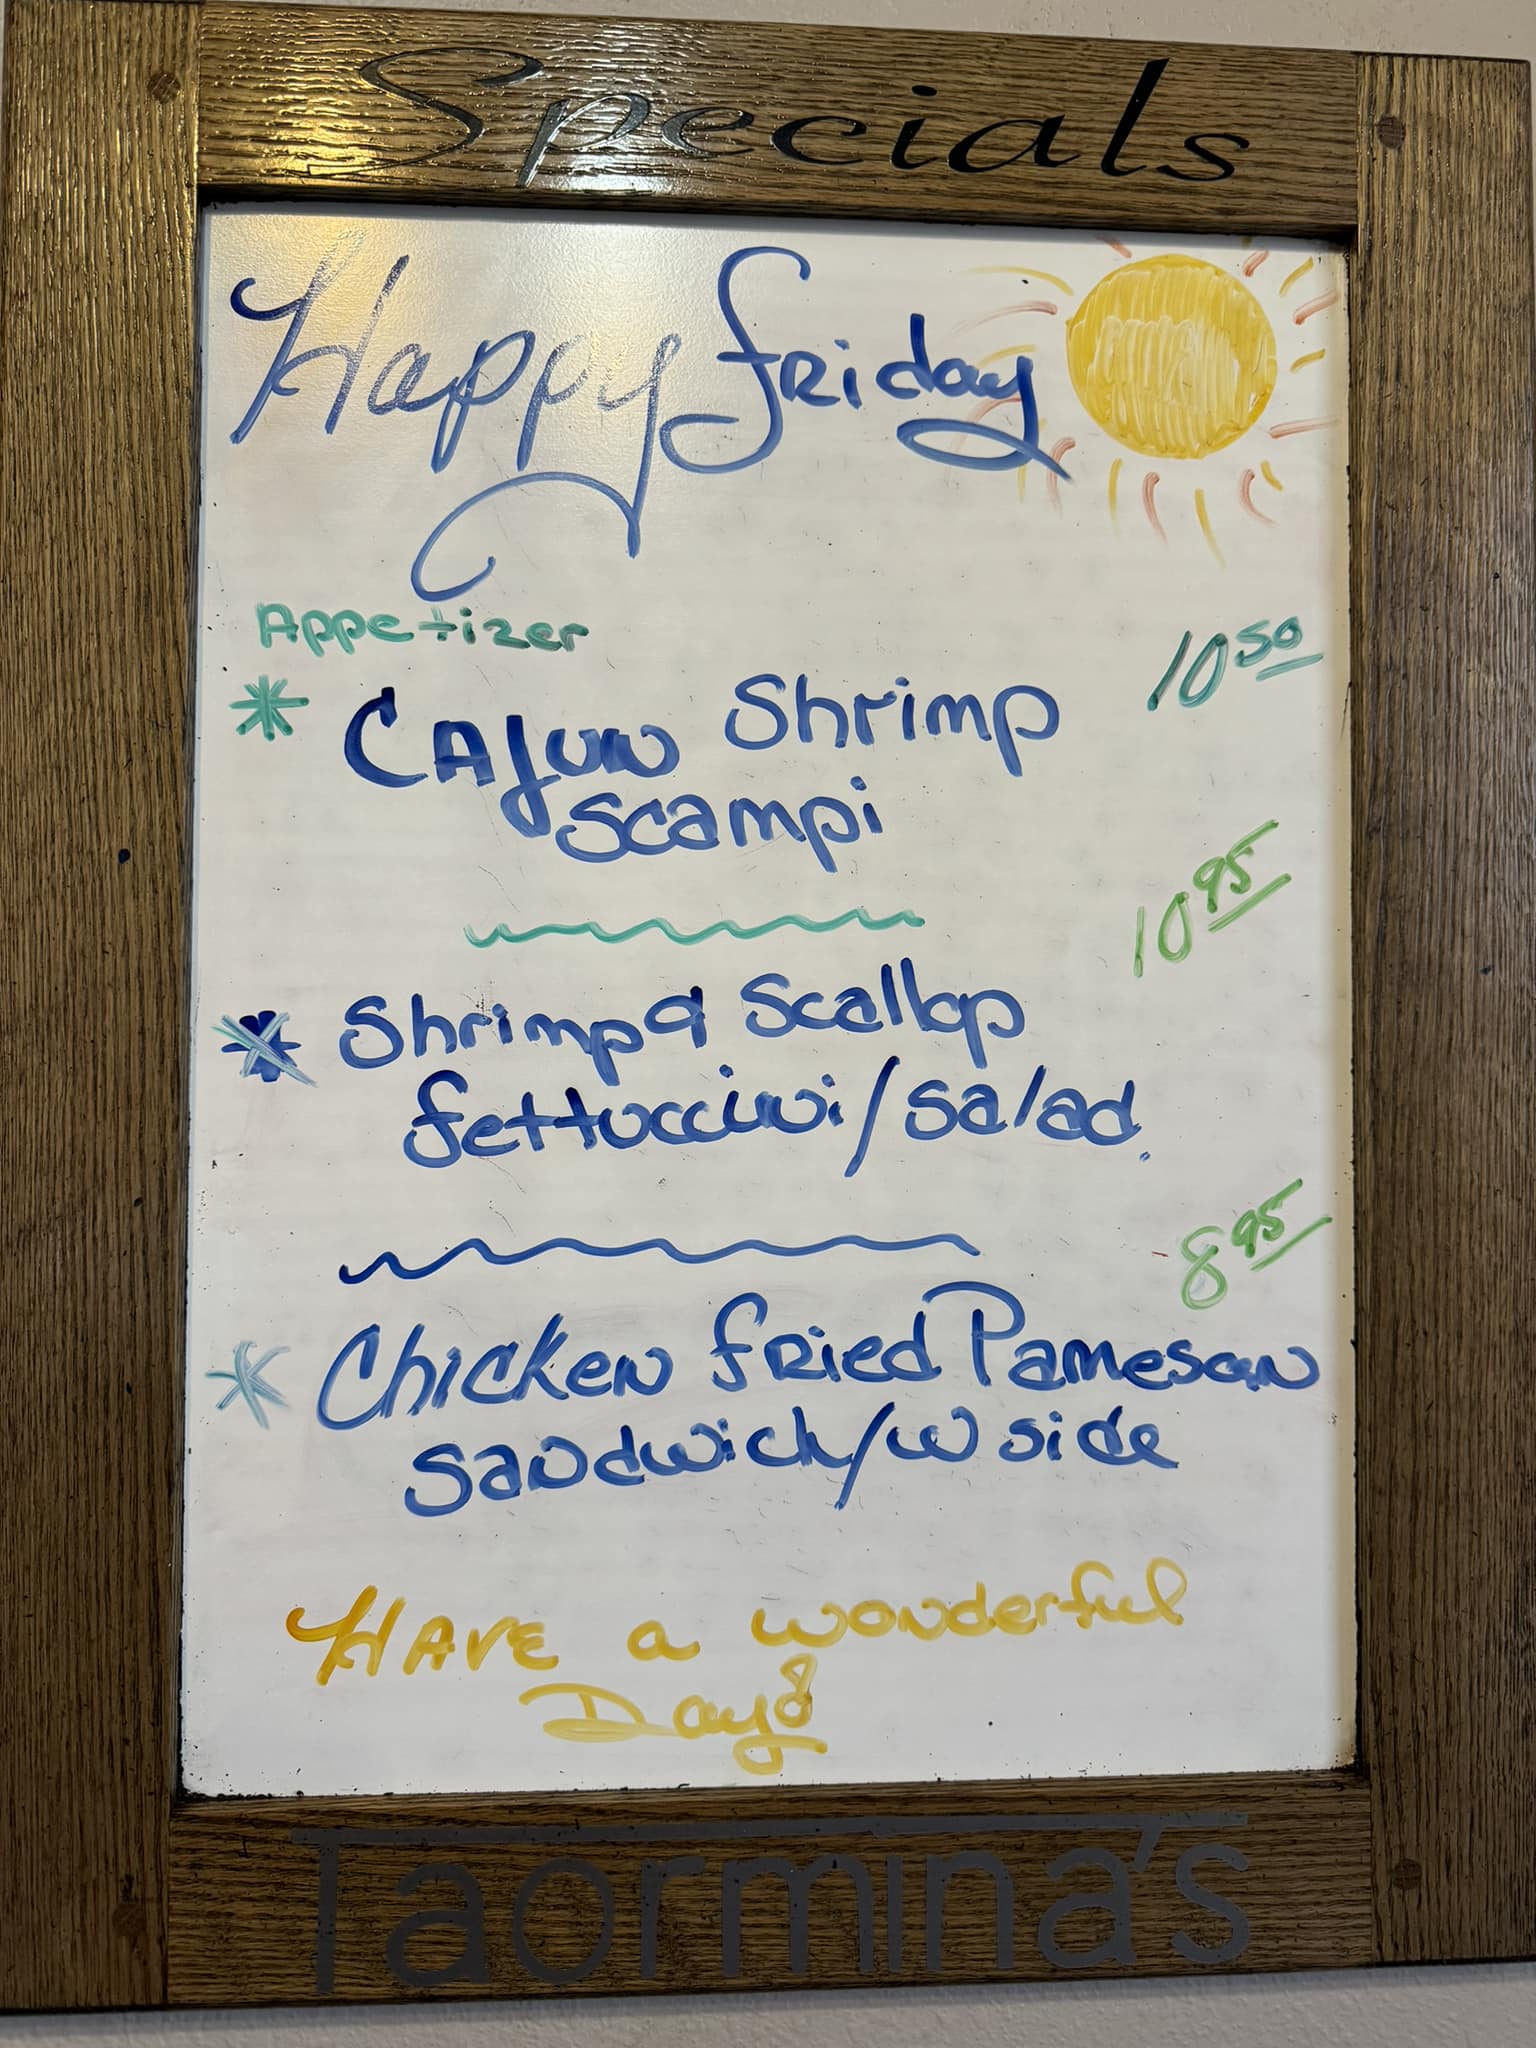 Specials
Happy friday
Appetizer
* Cajun Shrimp 10 50
Scampi
10 95
* Shrimp & Scallop
fettuccini/salad.
8 95
* Chicken fried Pamesan
sandwich/w side
Have a wonderful
Day!
Taormina's